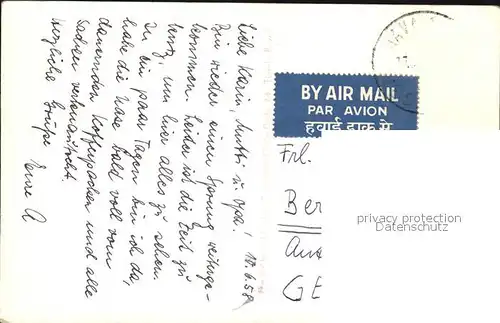 Liebe Karin, Mutti u. Opa!
18.6.58
Bin wieder einen Sprung weiterge-
kommen. Leider ist die Zeit zu
kurz, um hier alles zu sehen.
In ein paar Tagen bin ich da,
habe die Nase bald voll vom
dauernden Kofferpacken und alle
Sachen
Herzliche Grüße
Eure A
BY AIR MAIL
PAR AVION
हवाई डाक से
Frl.
Ber
GE
privacy protection
Datenschutz